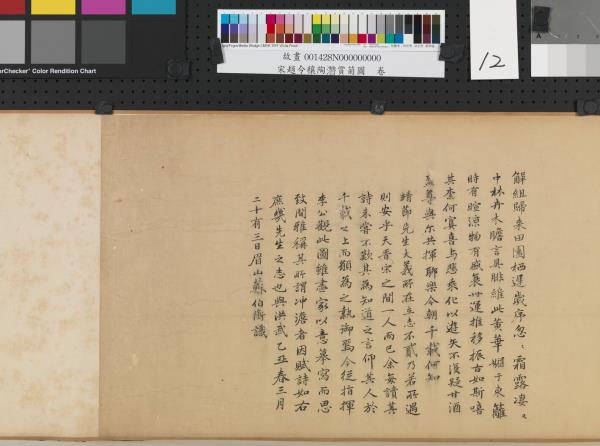 erChecker® Color Rendition Chart
故畫 001428N000000000
宋趙令穰陶潛賞菊圖 卷
12
A
解組歸來田園栖遲歲序忽〻霜露凄〻
中林卉木瞻言具腓維此黃華媚于東籬
時有暄涼物有盛衰世運推移振古如斯嘻
其奈何寘喜與悲乘化以遊矢不復疑甘酒
盈尊與尔共揮聊樂今朝千載何知
靖節先生大義所在立志不貳乃若所遇
則安乎天晋宋之間一人而已余每讀其
詩未嘗不歎其為知道之言仰其人於
千載之上而願為之執御焉今從指揮
李公觀此圖雖畫家以意摹寫而思
致閒雅稱其所謂冲澹者因賦詩如右
庶幾先生之志也與洪武乙丑春三月
二十有三日眉山蘇伯衡識